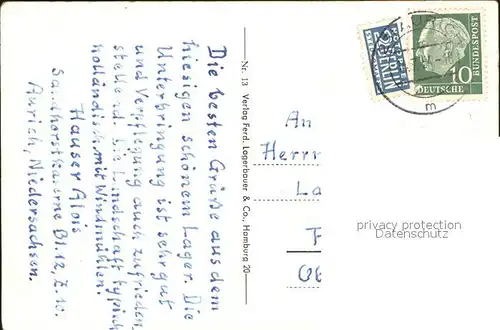 Die besten Grüße aus dem
hiesigen schönem Lager. Die
Unterbringung ist sehr gut
und Verpflegung auch zufrieden
stellend. Die Landschaft typisch
holländisch mit Windmühlen.
Hauser Alois
Sandhorstkaserne Bl. 12, Z. 10.
Aurich, Niedersachsen.
Nr. 13 Verlag Ferd. Lagerbauer & Co., Hamburg 20
2
BERLIN
DEUTSCHE
BUNDESPOST
10
An
Herrn
La
F
Ob
privacy protection
Datenschutz